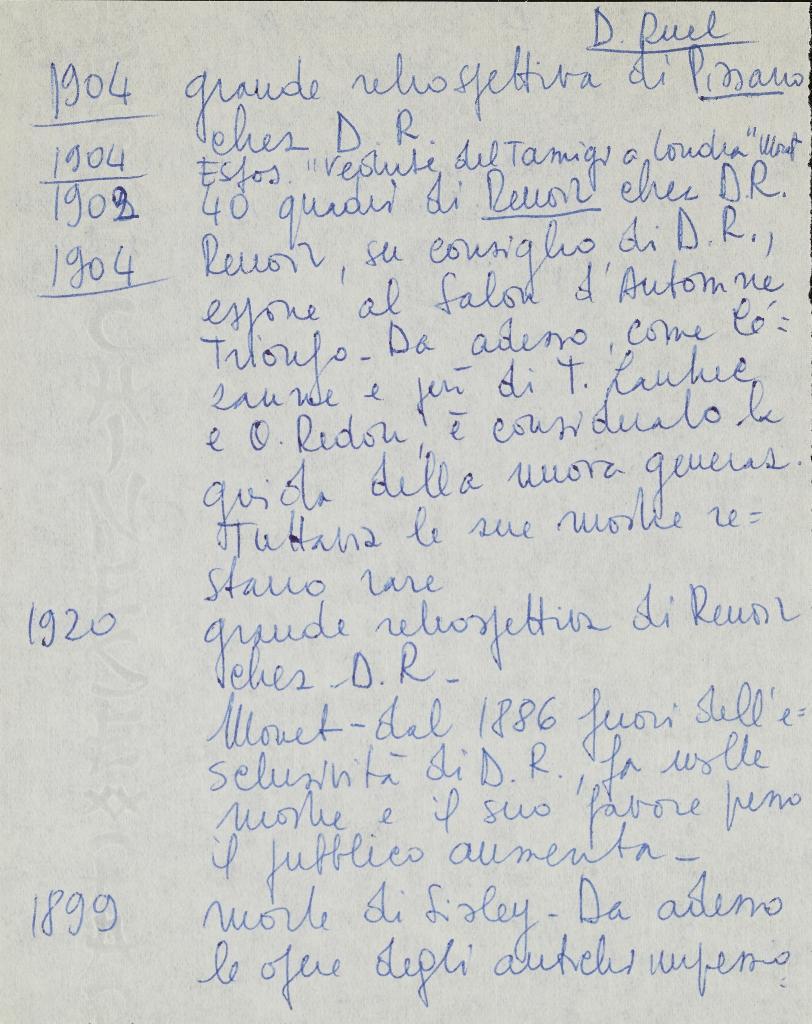 D. Ruel
1904 grande retrospettiva di Pissarro
chez D. R.
1904 Espos. "Vedute del Tamigi a Londra" Monet
1902 40 quadri di Renoir chez D.R.
1904 Renoir, su consiglio di D.R.,
espone al Salon d'Automne
Trionfo - Da adesso, come Cé=
zanne e più di T. Lautrec
e O. Redon, è considerato la
guida della nuova generaz.
Tuttavia le sue mostre re=
stano rare
1920 grande retrospettiva di Renoir
chez D.R -
Monet - dal 1886 fuori dell'e=
sclusività di D.R., fa molte
mostre e il suo favore presso
il pubblico aumenta -
1899 morte di Sisley - Da adesso
le opere degli antichi impressio=